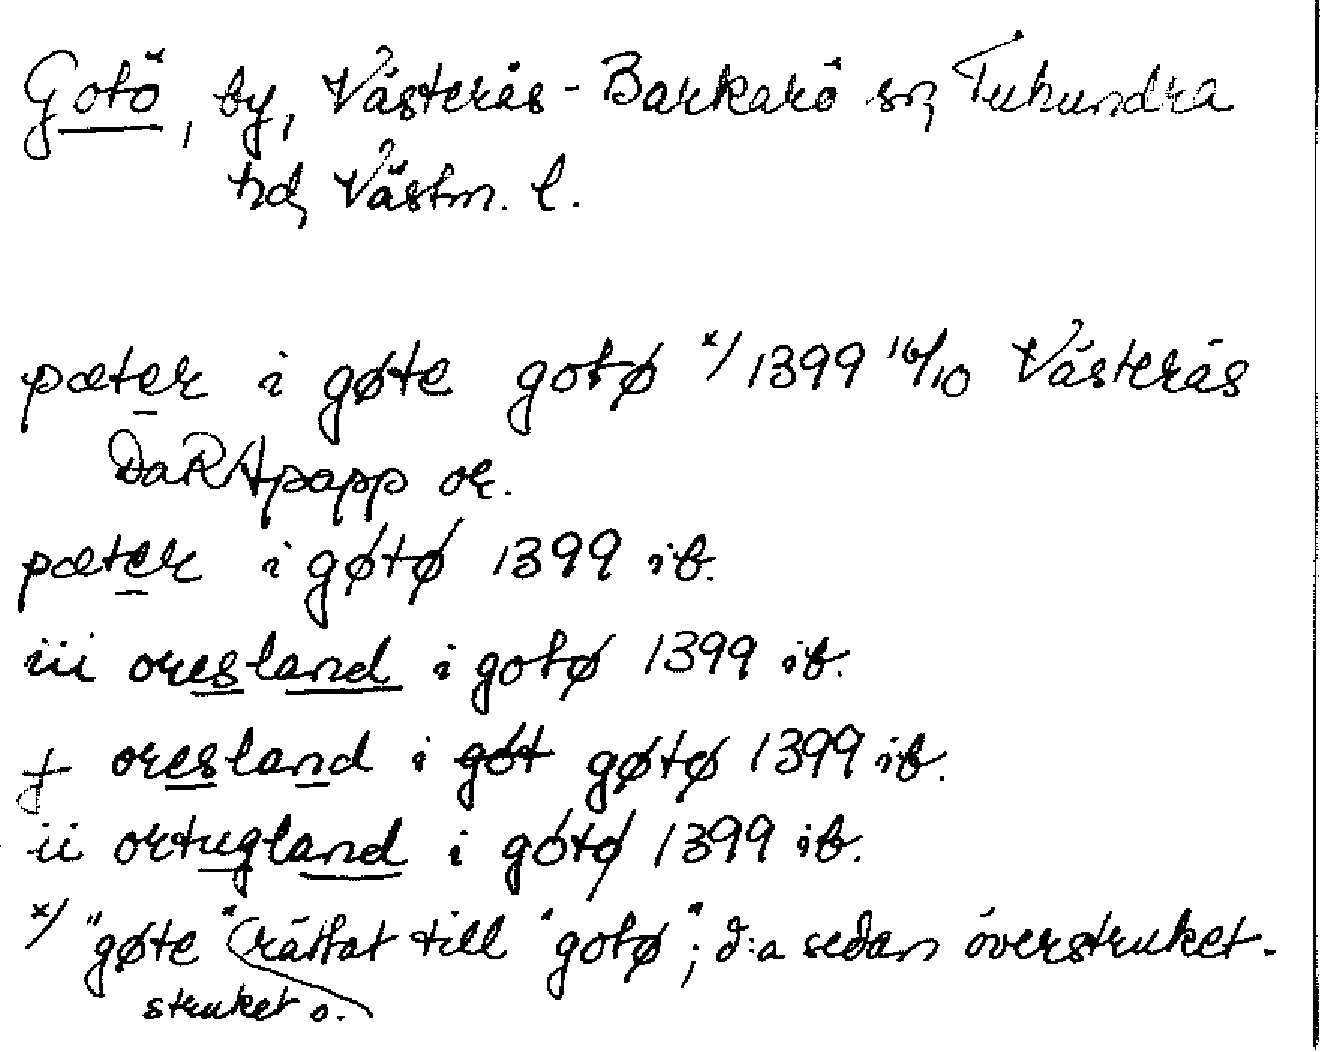 Gotö, by, Västerås-Barkarö sn, Tuhundra
hd, Västm. l.
pæter i gøte gotø x/ 1399 16/10 Västerås
DaRApapp or.
pæter i gøtø 1399 ib.
iii oresland i gotø 1399 ib.
j oresland i gøt gøtø 1399 ib.
ii ortugland i gøtø 1399 ib.
x/ "gøte" (rättat till "gotø"; d:a sedan överstruket.
struket o.